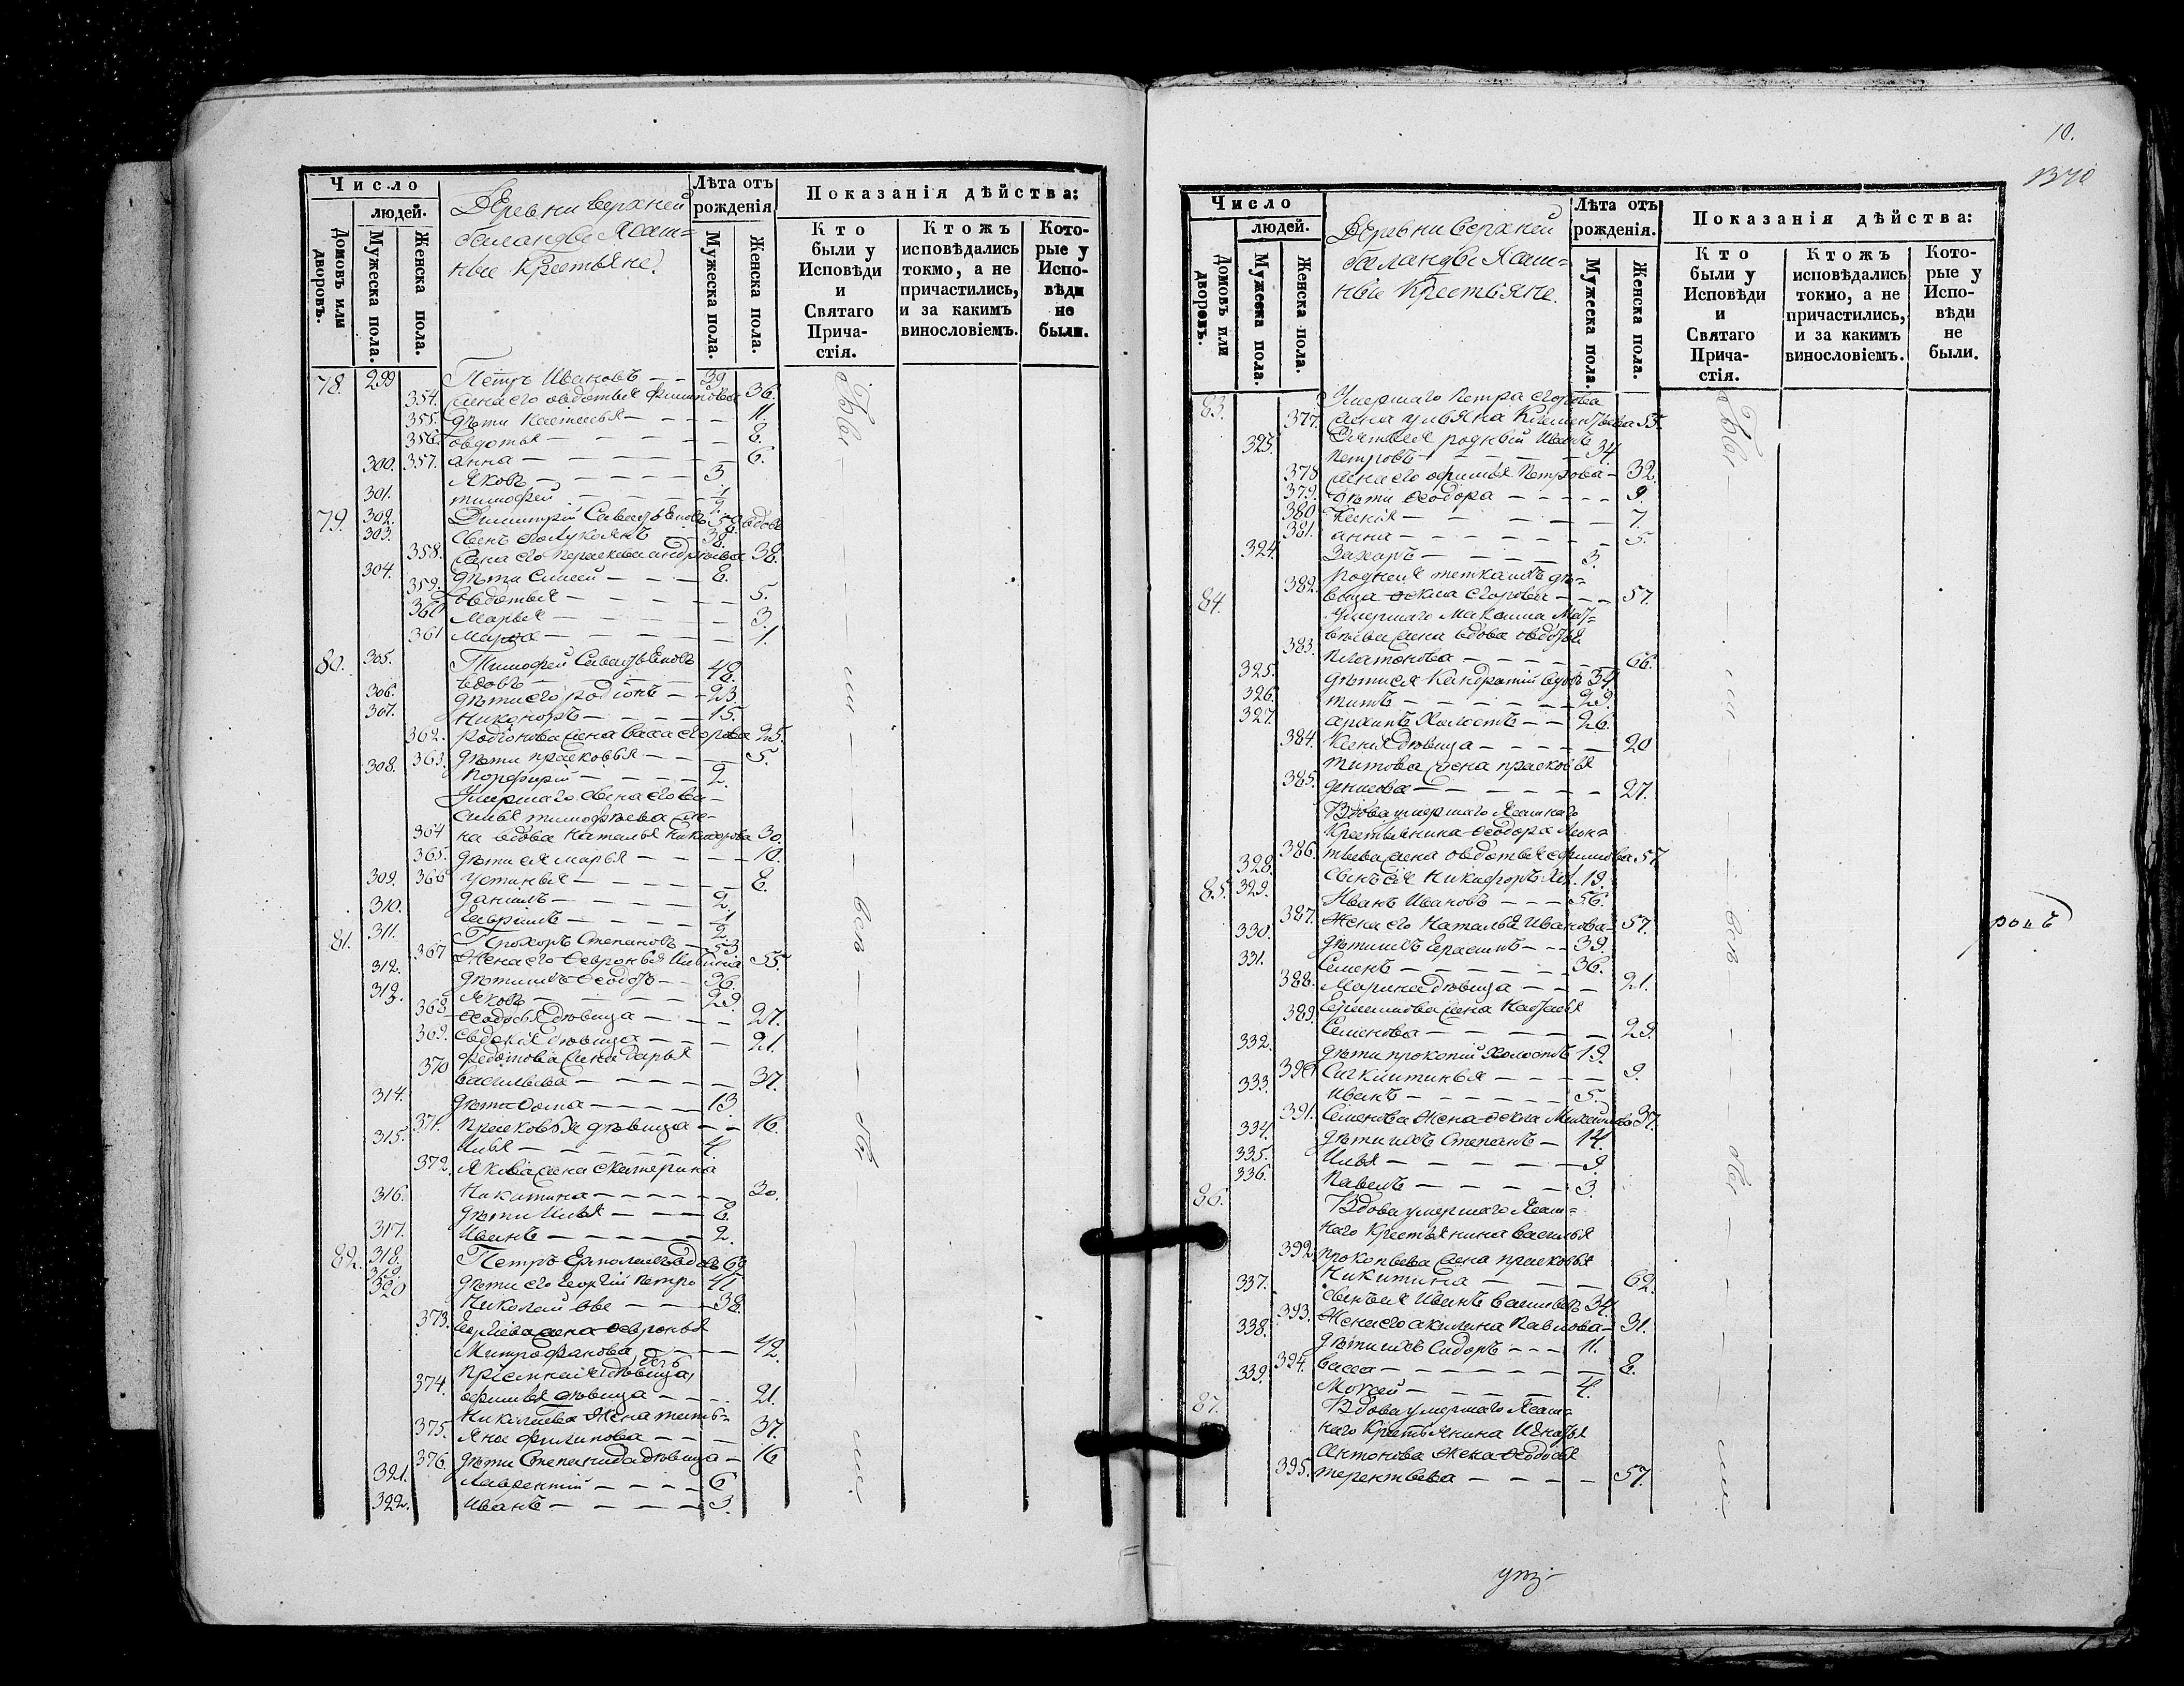 Число
людей.
Домовъ или дворовъ.
Мужеска пола.
Женска пола.
Деревни верхней
баланды Ясаш=
ные Крестьяне.
Лѣта отъ
рожденія
Мужеска пола.
Женска пола.
Показанія дѣйства:
Кто были у Исповѣди и Святаго Прича-стія.
Ктожъ исповѣдались токмо, а не причастились, и за какимъ винословіемъ.
Кото-рые у Испо-вѣди не были.
78. 299 Петръ Ивановъ — — 39
354. жена его овдотья 36.
355. дѣти — — — 11.
356. овдотья — — — 8.
357. анна — — — 6.
300. Яковъ — — — 3
301. тимофей — — — 1/2
79. 302. Димитрій 50 вдовъ
303. сынъ его Лукьянъ 38.
358. жена его 38.
304. дѣти — — 8.
359. овдотья — — — 5.
360 Марья — — — 3.
361 Марѳа — — — 1.
80. 305. Тимофей
вдовъ — — — 48.
306. дѣти его родіонъ — — 23.
307. Никаноръ — — — 15.
362. родіонова жена васса егорова 25.
363. дѣти прасковья — — — 5.
308. Порфирій — — — 2.
Умершаго сына его ва=
силья тимофѣева же=
364 на вдова наталья 30.
365. дѣти ея марья — — — 10.
366 устинья — — — 8.
309. даніилъ — — — 2
310. Гавріилъ — — — 1/2
81. 311. Прохоръ Степановъ — 53
367 Жена его Ѳевронья 55.
312. дѣти ихъ Ѳедотъ — — 36.
313. Яковъ — — — 29.
368 Ѳеодосья дѣвица — — — 27.
369. евдокія дѣвица — — — 21.
федотова жена дарья
370 васильева — — — 37.
314. дѣти Ѳома — — — 13.
371. прасковья дѣвица — — 16.
315. Илья — — — 4
372. Якова жена екатерина
Никитина — — — 30.
316. дѣти Илья — — — 8.
317. Иванъ — — — 2.
82. 318. Петръ вдовъ 69
319. дѣти его Георгій петро 41
320 Николай вы — — — 38.
373. Георгіева жена Ѳевронья
Митрофанова — — — 42.
374. афимья дѣвица — — — 21.
375. Николаева Жена тать=
яна филипова — — — 37.
376. дѣти Степанида дѣвица — 16
321. Лаврентій — — — 6
322. Иванъ — — — 3.
Были — всѣ — были
10.
1370
Число
людей.
Домовъ или дворовъ.
Мужеска пола.
Женска пола.
Деревни верхней
баланды Ясаш=
ные Крестьяне.
Лѣта отъ
рожденія.
Мужеска пола.
Женска пола.
Показанія дѣйства:
Кто были у Исповѣди и Святаго Прича-стія.
Ктожъ исповѣдались токмо, а не причастились, и за какимъ винословіемъ.
Кото-рые у Испо-вѣди не были.
83. Умершаго петра егорова
377. жена ульяна 55.
родный Иванъ
петровъ — — — 34.
378 жена его афимья петрова — 32.
379. дѣти Ѳеодора — — — 9.
380 Ксенія — — — 7.
381. анна — — — 5.
324. Захаръ — — — 3.
родная тетка ихъ дѣ=
382. вица Ѳекла егорова — — — 57.
84. Умершаго Максима Мат=
вѣева жена вдова овдотья
383. Платонова — — — 66.
325. дѣти ея Кандратій вдовъ 34.
326. титъ — — — 29.
327. архипъ Холостъ — — 26.
384. Ксенія дѣвица — — — 20
титова жена прасковья
385. денисова — — — 27.
Вдова умершаго Ясашнаго
Крестьянина Ѳеодора Леон=
386. тьева жена овдотья ефимова 57.
328. Сынъ ея Никифоръ Хол. 19.
85. 329. Иванъ Ивановъ — — — 56.
387. Жена его Наталья Иванова — 57.
330. дѣти ихъ Герасимъ — — — 39.
331. Семенъ — — — 36.
388. Марина дѣвица — — — 21.
389. Герасимова жена Наталья
Семенова — — — 29.
332. дѣти прокопій Холостъ 19.
390 — — — 9.
333. Иванъ — — — 5.
391. Семенова Жена Ѳекла Михайлова 37.
334. дѣти ихъ Степанъ — 14.
335. Илья — — — 9.
336. Павелъ — — — 3.
86. Вдова умершаго Ясаш=
наго Крестьянина василья
392. прокопьева жена прасковья
Никитина — — — 62.
337. сынъ ея Иванъ васильевъ 34.
393. Жена его акилина Павлова — 31.
338. дѣти ихъ Сидоръ — — — 11.
394. васса — — — 8.
339. Моисей — — — 4.
87. Вдова умершаго Ясаш=
наго Крестьянина Игнатья
Антонова Жена Ѳедосья
395. терентьева — — — 57.
Были — всѣ — были
ровъ